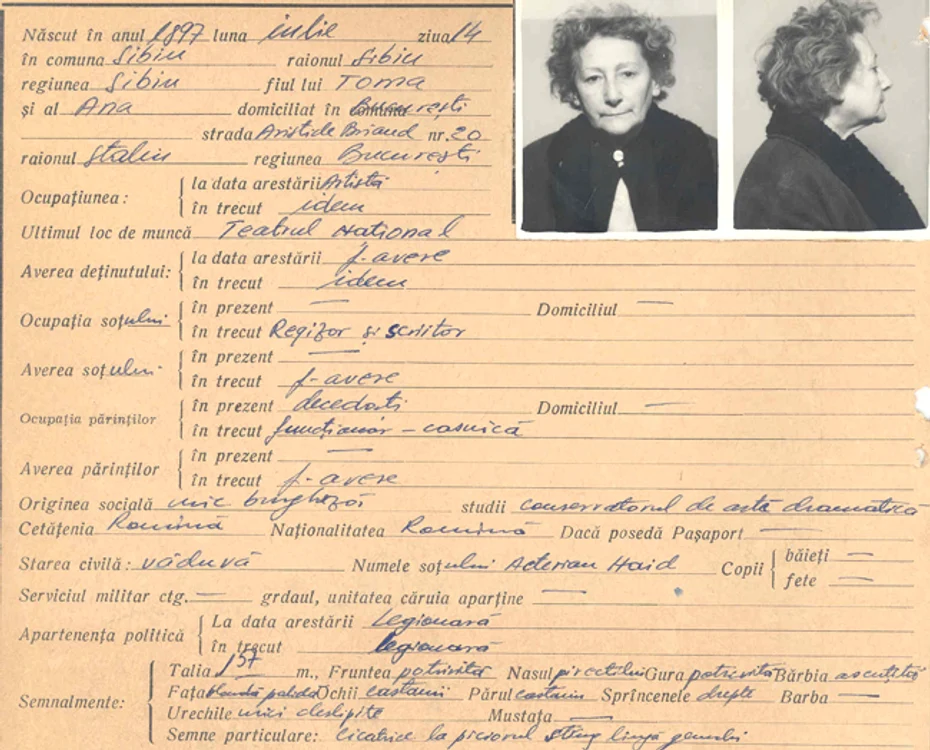 Născut în anul 1897 luna iulie ziua 14
în comuna Sibiu raionul Sibiu
regiunea Sibiu fiul lui Toma
și al Ana domiciliat în București
strada Aristide Briand nr. 20
raionul Stalin regiunea București
Ocupațiunea: la data arestării Artistă
în trecut idem
Ultimul loc de muncă Teatrul Național
Averea deținutului: la data arestării f. avere
în trecut idem
Ocupația soțului în prezent — Domiciliul —
în trecut Regizor și scriitor
Averea soțului în prezent —
în trecut f. avere
Ocupația părinților în prezent decedați Domiciliul —
în trecut funcționar - casnică
Averea părinților în prezent —
în trecut f. avere
Originea socială mic burgheză studii conservatorul de artă dramatică
Cetățenia Romînă Naționalitatea Romînă Dacă posedă Pașaport —
Starea civilă: văduvă Numele soțului Acterian Haid Copii băieți —
fete —
Serviciul militar ctg. — grdaul, unitatea căruia aparține —
Apartenența politică La data arestării Legionară
în trecut legionară
Semnalmente: Talia 1,57 m., Fruntea potrivită Nasul Gura potrivită Bărbia ascuțită
Fața palidă Ochii castanii Părul castaniu Sprîncenele drepte Barba —
Urechile mici deslipite Mustața —
Semne particulare: cicatrice la piciorul stîng lîngă genunchi